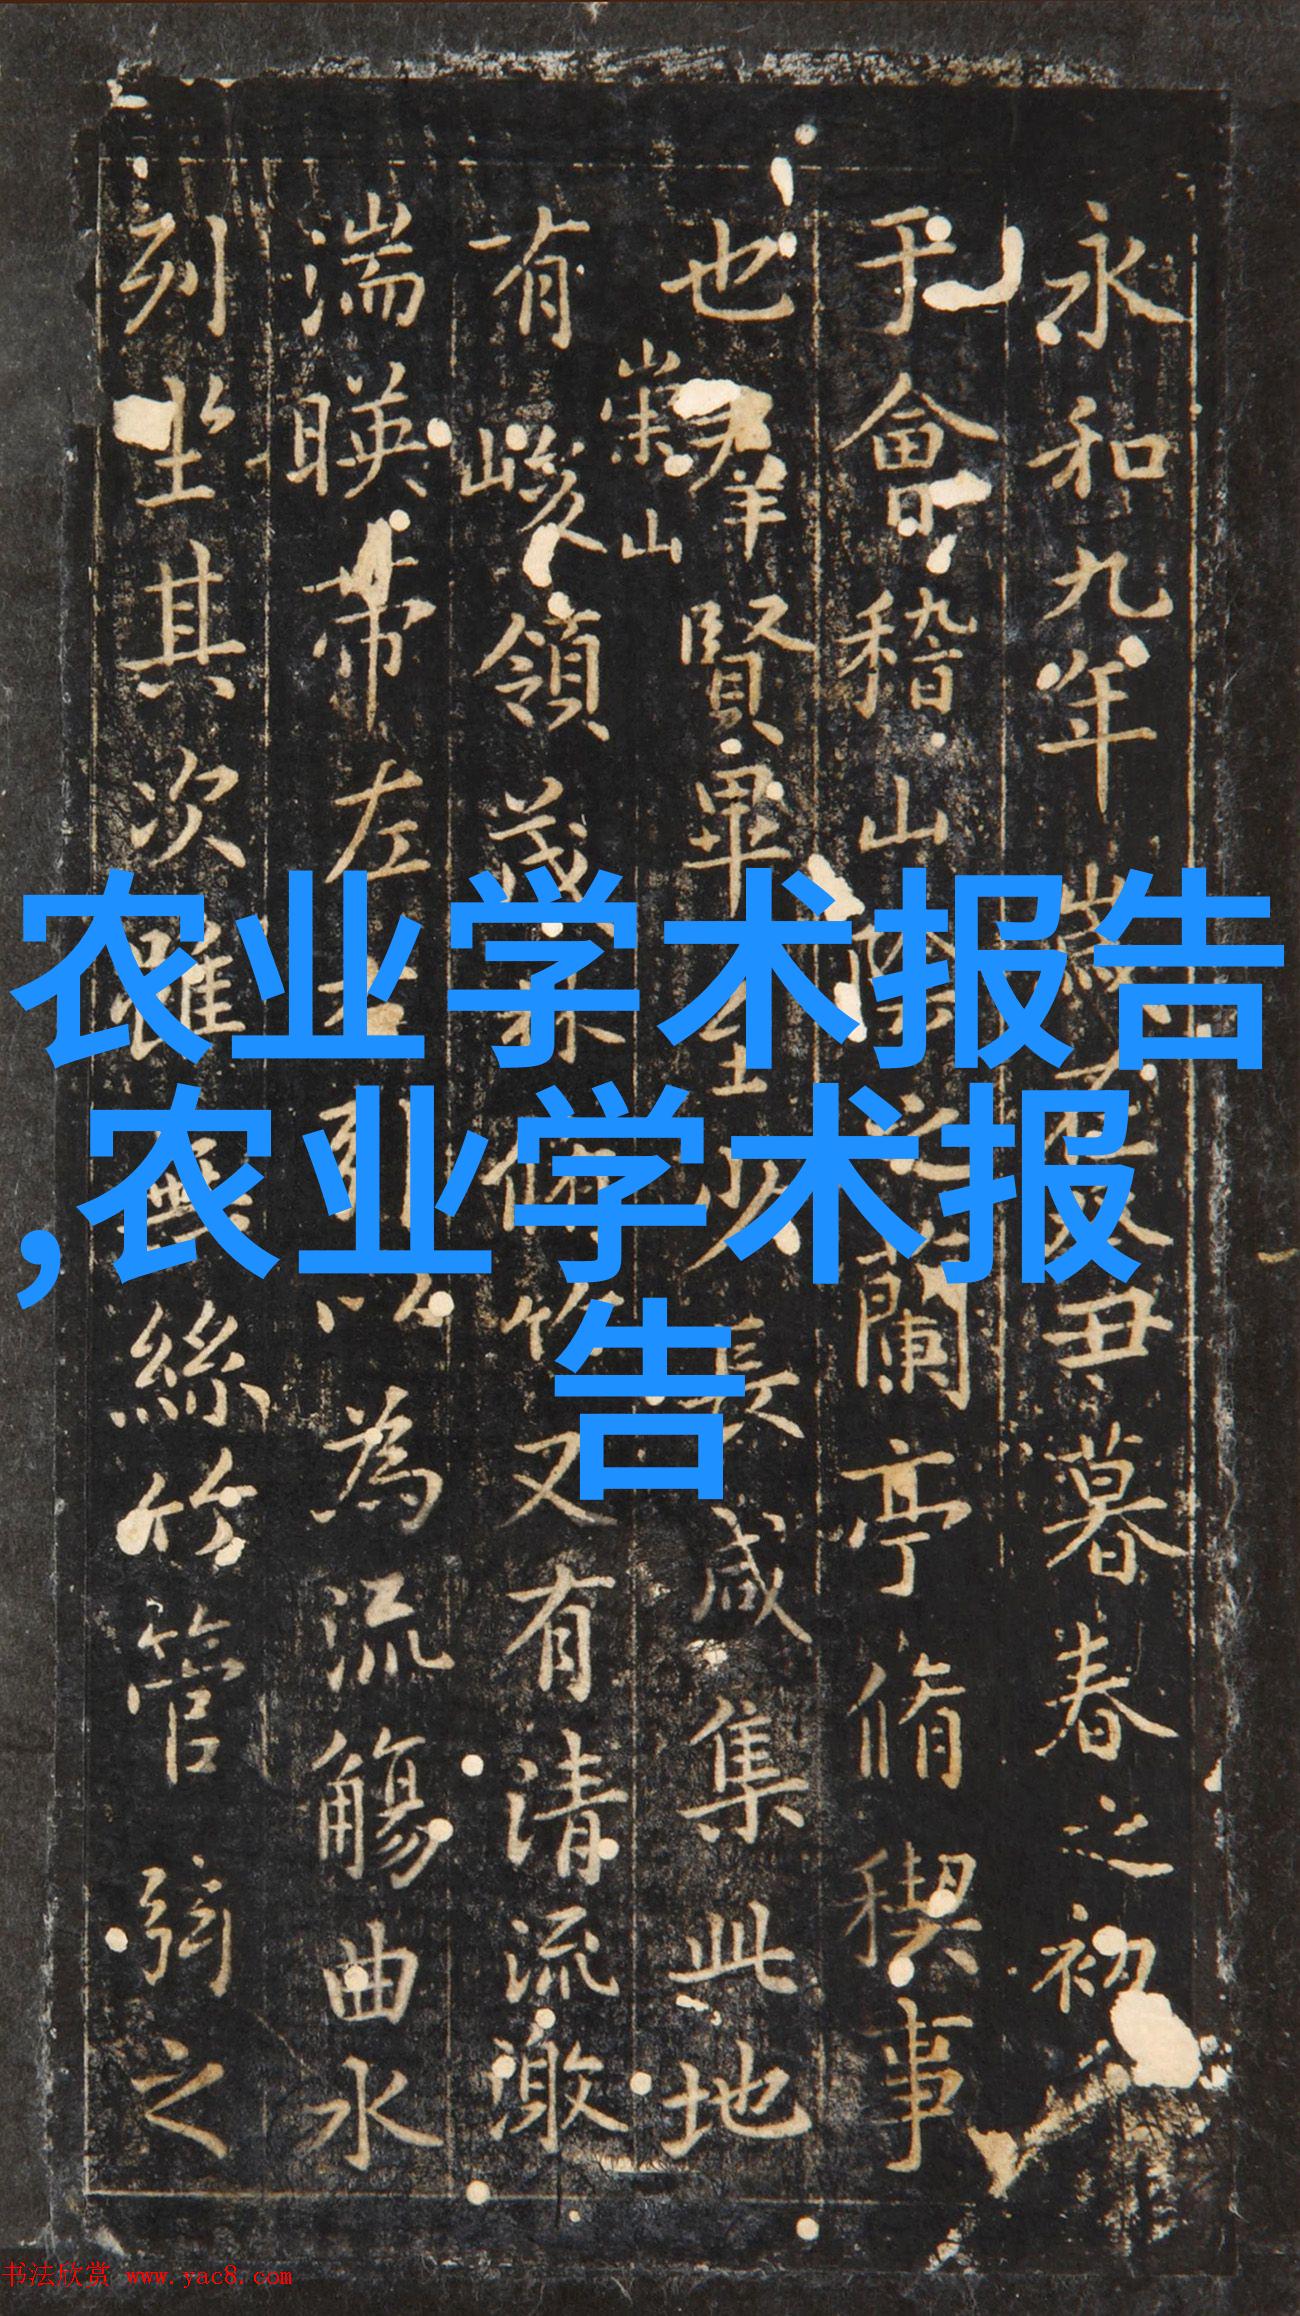 永和九年歲在癸丑暮春之初
于會稽山陰之蘭亭脩稧事
也羣賢畢至少長咸集此地
崇山
有峻領茂林脩竹又有清流激
湍暎帶左右引以為流觴曲水
列坐其次雖無絲竹管弦之
农业学术报告
,农业学术报
告
书法欣赏 www.yac8.com